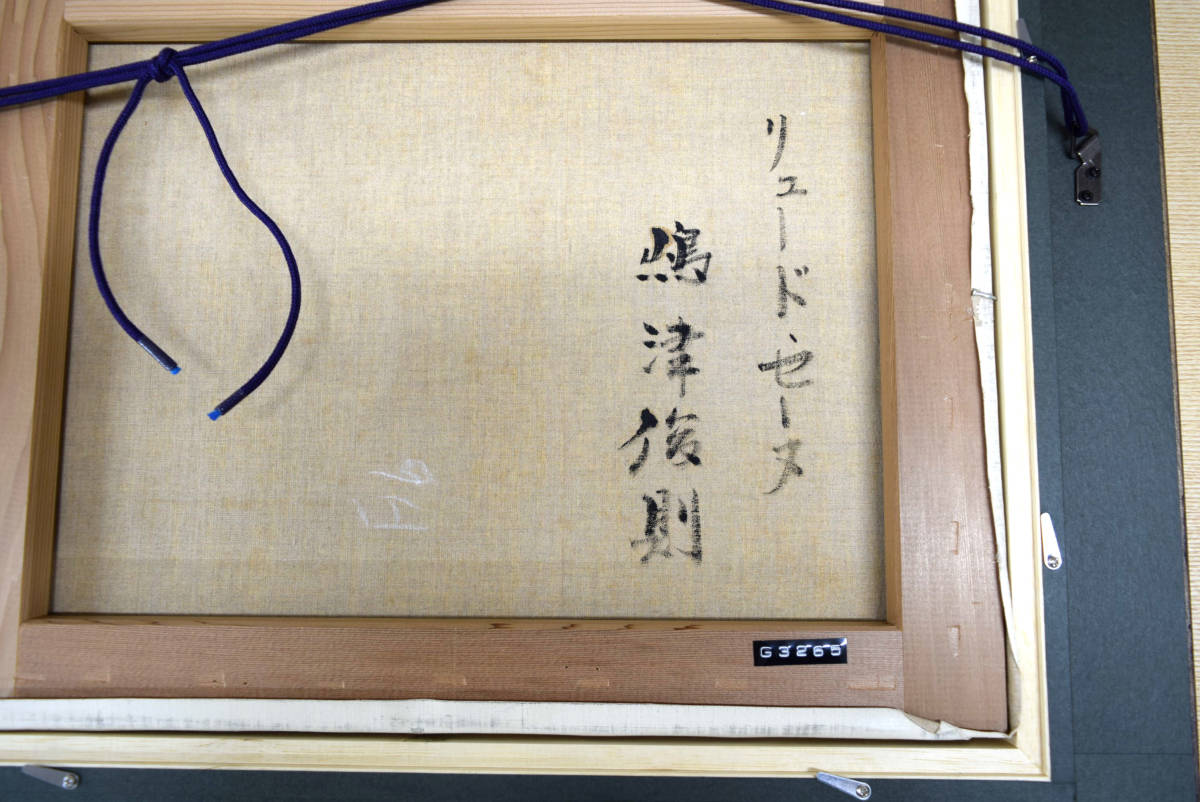 リュード、セーヌ
嶋津俊則
F6
G3265